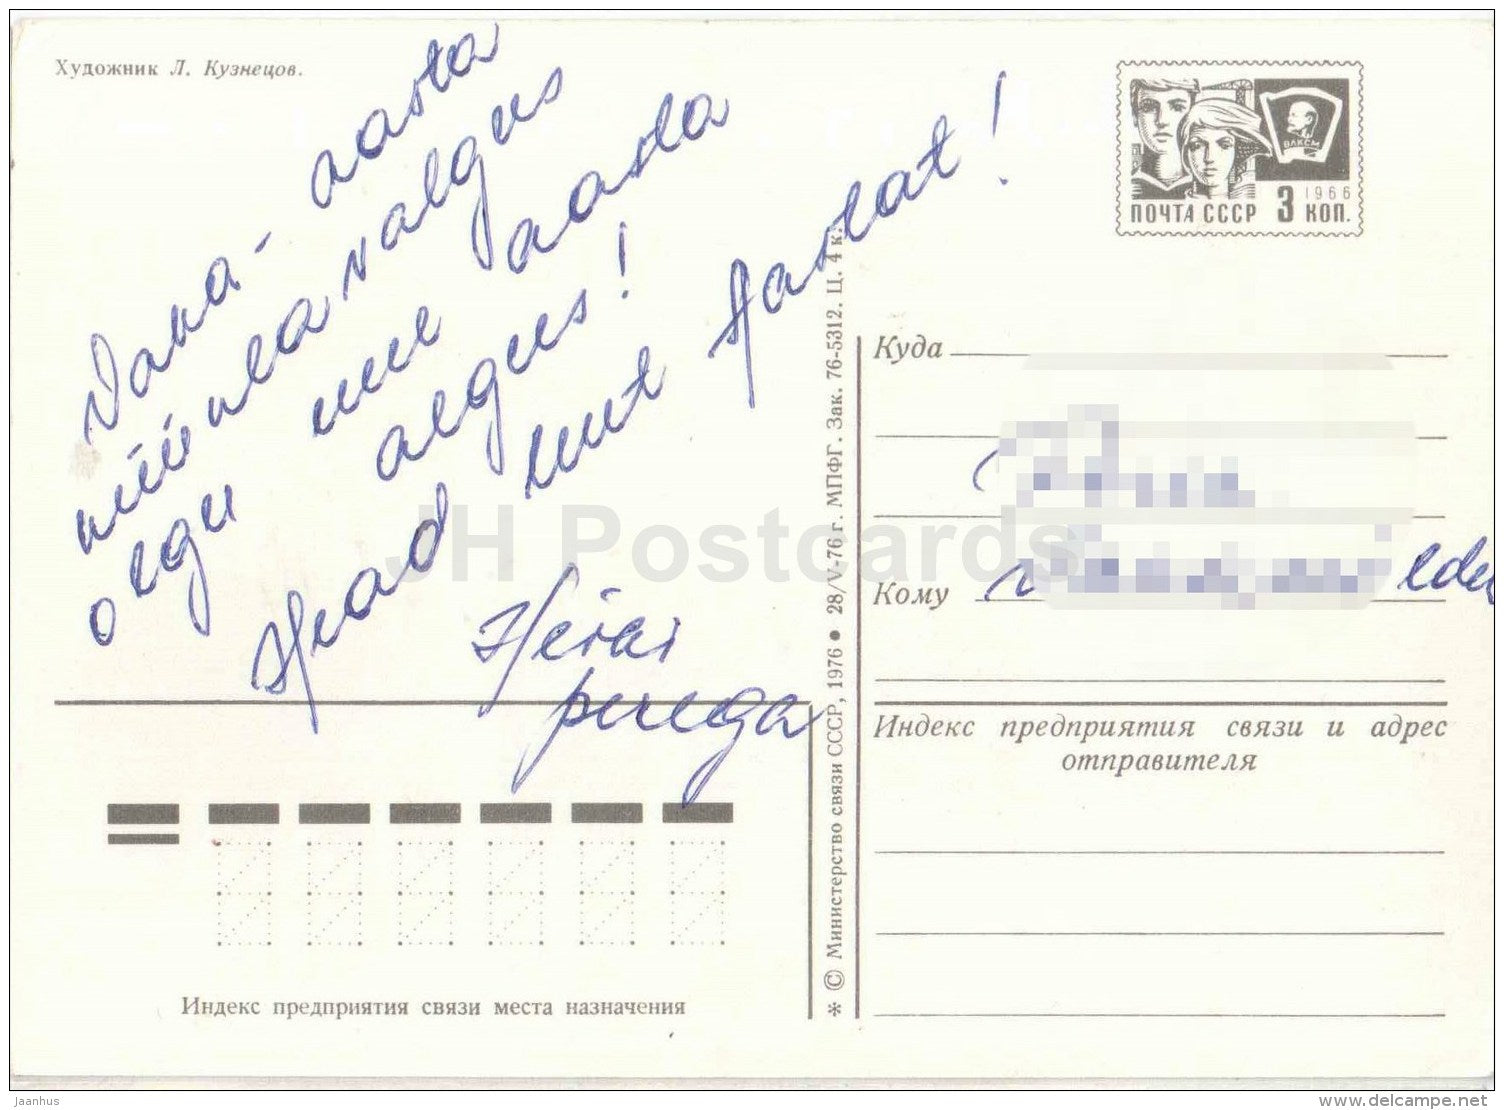 Художник Л. Кузнецов.
Vana- aasta
olgu uue aasta
algus!
Head uut Aastat!
perega
ВЛКСМ
1966
ПОЧТА СССР 3 КОП.
Куда
Кому
Индекс предприятия связи и адрес
отправителя
Индекс предприятия связи места назначения
* © Министерство связи СССР, 1976 ● 28/V-76 г. МПФГ. Зак. 76-5312. Ц. 4 к.
JH Postcards
Jaanhus
www.delcampe.net